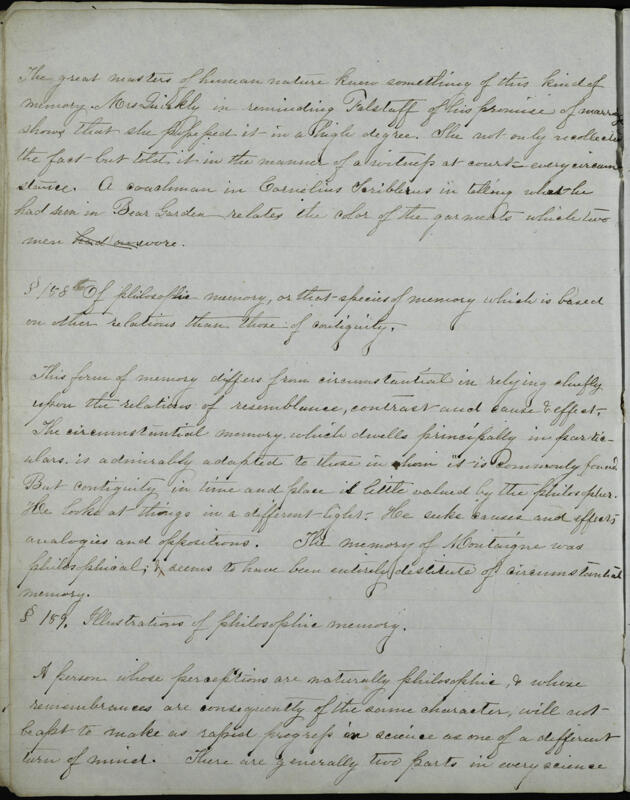 The great masters of human nature knew something of this kind of
memory. Mrs Quickly in reminding Falstaff of his promise of marrage
shows that she possessed it in a high degree. She not only recollected
the fact but told it in the manner of a witness at court every circum
stance. A coachman in Cornelius Scriblerus in telling what he
had seen in Bear Garden relates the color of the garments which two
men had on wore.
§ 188th Of philosophic memory, or that species of memory which is based
on other relations than those of contiguity.
This form of memory differs from circumstantial in relying chiefly
upon the relations of resemblance, contrast and cause & effect.
The circumstantial memory, which dwells principally in partic-
ulars, is admirably adapted to those in whom it is commonly found.
But contiguity in time and place is little valued by the philosopher.
He looks at things in a different light. He seeks causes and effects,
analogies and oppositions. The memory of Montaigne was
philosophical; & seems to have been entirely destitute of circumstantial
memory.
§ 189. Illustrations of philosophic memory.
A person whose perceptions are naturally philosophic, & whose
remembrances are consequently of the same character, will not
be apt to make as rapid progress in science as one of a different
turn of mind. There are generally two parts in every science